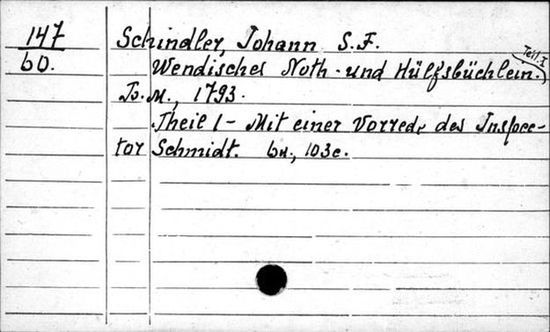 147 Schindler, Johann S.F.
60. Wendisches Noth- und Hülfsbüchlein. Teil I
1793.
Theil 1 - Mit einer Vorrede des Inspec-
tor Schmidt. 103c.